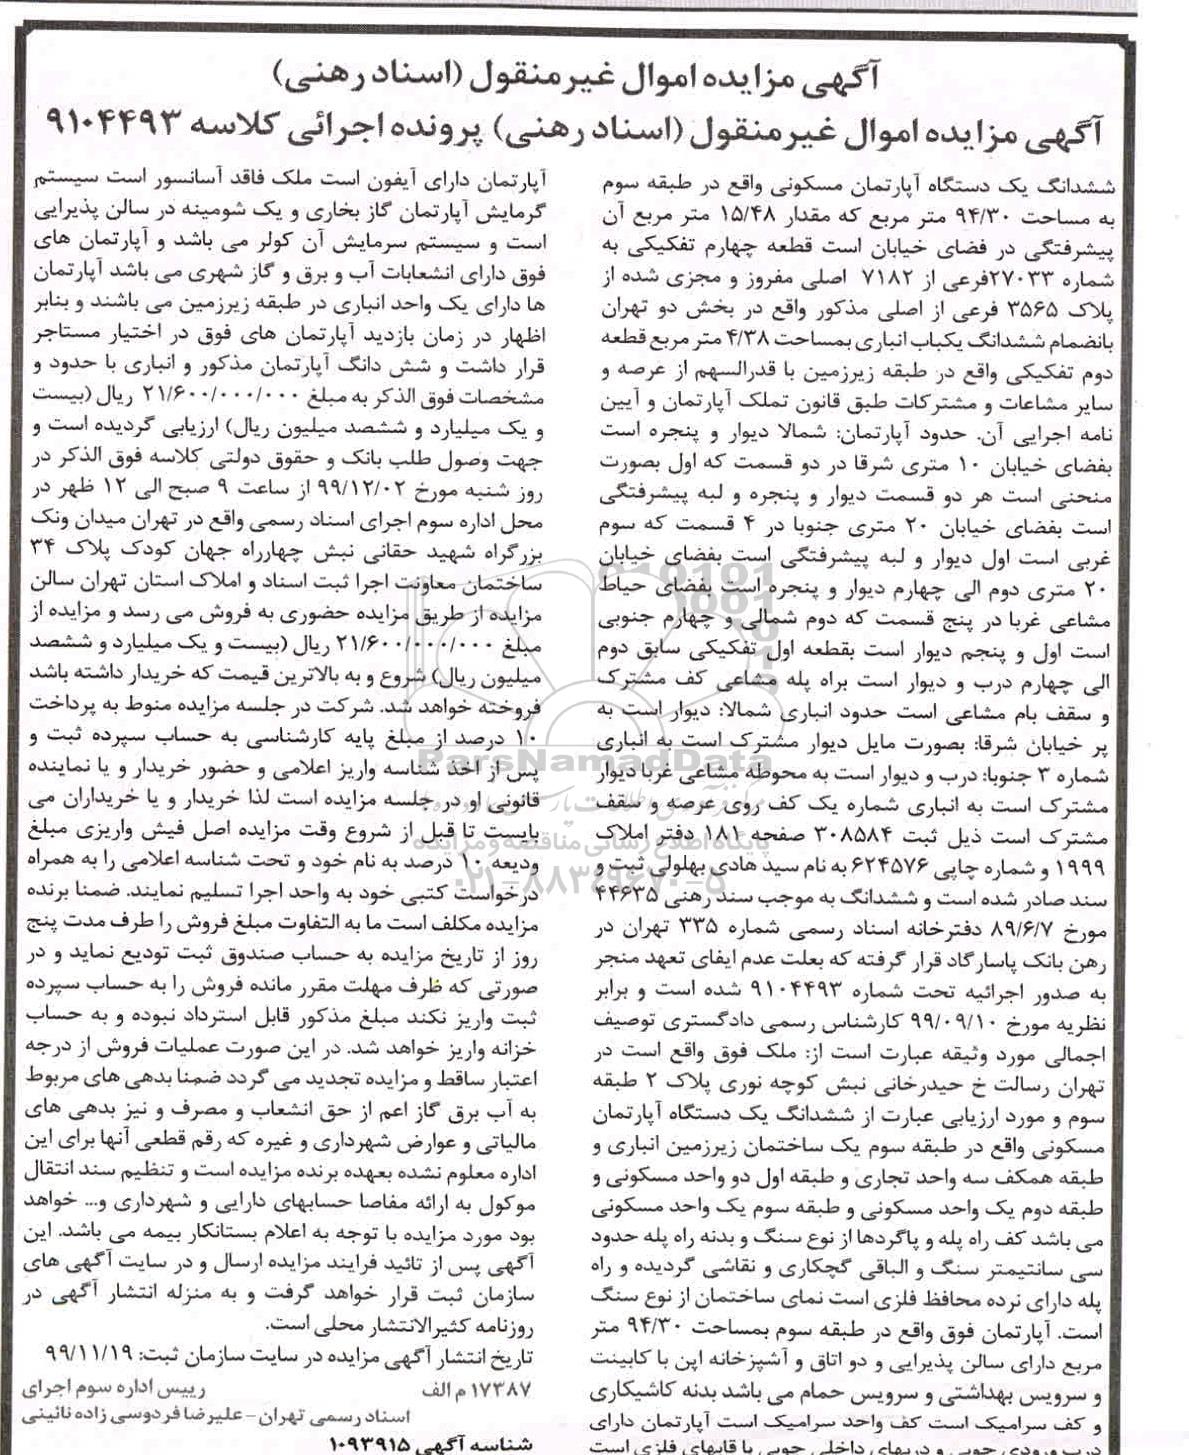 آگهی مزایده اموال غیرمنقول (اسناد رهنی)
آگهی مزایده اموال غیرمنقول (اسناد رهنی) پرونده اجرائی کلاسه ۹۱۰۴۴۹۳
ششدانگ یک دستگاه آپارتمان مسکونی واقع در طبقه سوم
به مساحت ۹۴/۳۰ متر مربع که مقدار ۱۵/۴۸ متر مربع آن
پیشرفتگی در فضای خیابان است قطعه چهارم تفکیکی به
شماره ۲۷۰۳۳فرعی از ۷۱۸۲ اصلی مفروز و مجزی شده از
پلاک ۳۵۶۵ فرعی از اصلی مذکور واقع در بخش دو تهران
بانضمام ششدانگ یکباب انباری بمساحت ۴/۳۸ متر مربع قطعه
دوم تفکیکی واقع در طبقه زیرزمین با قدرالسهم از عرصه و
سایر مشاعات و مشترکات طبق قانون تملک آپارتمان و آیین
نامه اجرایی آن. حدود آپارتمان: شمالا دیوار و پنجره است
بفضای خیابان ۱۰ متری شرقا در دو قسمت که اول بصورت
منحنی است هر دو قسمت دیوار و پنجره و لبه پیشرفتگی
است بفضای خیابان ۲۰ متری جنوبا در ۴ قسمت که سوم
غربی است اول دیوار و لبه پیشرفتگی است بفضای خیابان
۲۰ متری دوم الی چهارم دیوار و پنجره است بفضای حیاط
مشاعی غربا در پنج قسمت که دوم شمالی و چهارم جنوبی
است اول و پنجم دیوار است بقطعه اول تفکیکی سابق دوم
الی چهارم درب و دیوار است براه پله مشاعی کف مشترک
و سقف بام مشاعی است حدود انباری شمالا: دیوار است به
پر خیابان شرقا: بصورت مایل دیوار مشترک است به انباری
شماره ۳ جنوبا: درب و دیوار است به محوطه مشاعی غربا دیوار
مشترک است به انباری شماره یک کف روی عرصه و سقف
مشترک است ذیل ثبت ۳۰۸۵۸۴ صفحه ۱۸۱ دفتر املاک
۱۹۹۹ و شماره چاپی ۶۲۴۵۷۶ به نام سید هادی بهلولی ثبت و
سند صادر شده است و ششدانگ به موجب سند رهنی ۴۴۶۳۵
مورخ ۸۹/۶/۷ دفترخانه اسناد رسمی شماره ۳۳۵ تهران در
رهن بانک پاسارگاد قرار گرفته که بعلت عدم ایفای تعهد منجر
به صدور اجرائیه تحت شماره ۹۱۰۴۴۹۳ شده است و برابر
نظریه مورخ ۹۹/۰۹/۱۰ کارشناس رسمی دادگستری توصیف
اجمالی مورد وثیقه عبارت است از: ملک فوق واقع است در
تهران رسالت خ حیدرخانی نبش کوچه نوری پلاک ۲ طبقه
سوم و مورد ارزیابی عبارت از ششدانگ یک دستگاه آپارتمان
مسکونی واقع در طبقه سوم یک ساختمان زیرزمین انباری و
طبقه همکف سه واحد تجاری و طبقه اول دو واحد مسکونی و
طبقه دوم یک واحد مسکونی و طبقه سوم یک واحد مسکونی
می باشد کف راه پله و پاگردها از نوع سنگ و بدنه راه پله حدود
سی سانتیمتر سنگ و الباقی گچکاری و نقاشی گردیده و راه
پله دارای نرده محافظ فلزی است نمای ساختمان از نوع سنگ
است. آپارتمان فوق واقع در طبقه سوم بمساحت ۹۴/۳۰ متر
مربع دارای سالن پذیرایی و دو اتاق و آشپزخانه اپن با کابینت
و سرویس بهداشتی و سرویس حمام می باشد بدنه کاشیکاری
و کف سرامیک است کف واحد سرامیک است آپارتمان دارای
درب ورودی چوبی و دربهای داخلی چوبی با قابهای فلزی است
آپارتمان دارای آیفون است ملک فاقد آسانسور است سیستم
گرمایش آپارتمان گاز بخاری و یک شومینه در سالن پذیرایی
است و سیستم سرمایش آن کولر می باشد و آپارتمان های
فوق دارای انشعابات آب و برق و گاز شهری می باشد آپارتمان
ها دارای یک واحد انباری در طبقه زیرزمین می باشند و بنابر
اظهار در زمان بازدید آپارتمان های فوق در اختیار مستاجر
قرار داشت و شش دانگ آپارتمان مذکور و انباری با حدود و
مشخصات فوق الذکر به مبلغ ۲۱/۶۰۰/۰۰۰/۰۰۰ ریال (بیست
و یک میلیارد و ششصد میلیون ریال) ارزیابی گردیده است و
جهت وصول طلب بانک و حقوق دولتی کلاسه فوق الذکر در
روز شنبه مورخ ۹۹/۱۲/۰۲ از ساعت ۹ صبح الی ۱۲ ظهر در
محل اداره سوم اجرای اسناد رسمی واقع در تهران میدان ونک
بزرگراه شهید حقانی نبش چهارراه جهان کودک پلاک ۳۴
ساختمان معاونت اجرا ثبت اسناد و املاک استان تهران سالن
مزایده از طریق مزایده حضوری به فروش می رسد و مزایده از
مبلغ ۲۱/۶۰۰/۰۰۰/۰۰۰ ریال (بیست و یک میلیارد و ششصد
میلیون ریال) شروع و به بالاترین قیمت که خریدار داشته باشد
فروخته خواهد شد. شرکت در جلسه مزایده منوط به پرداخت
۱۰ درصد از مبلغ پایه کارشناسی به حساب سپرده ثبت و
پس از اخذ شناسه واریز اعلامی و حضور خریدار و یا نماینده
قانونی او در جلسه مزایده است لذا خریدار و یا خریداران می
بایست تا قبل از شروع وقت مزایده اصل فیش واریزی مبلغ
ودیعه ۱۰ درصد به نام خود و تحت شناسه اعلامی را به همراه
درخواست کتبی خود به واحد اجرا تسلیم نمایند. ضمنا برنده
مزایده مکلف است ما به التفاوت مبلغ فروش را ظرف مدت پنج
روز از تاریخ مزایده به حساب صندوق ثبت تودیع نماید و در
صورتی که ظرف مهلت مقرر مانده فروش را به حساب سپرده
ثبت واریز نکند مبلغ مذکور قابل استرداد نبوده و به حساب
خزانه واریز خواهد شد. در این صورت عملیات فروش از درجه
اعتبار ساقط و مزایده تجدید می گردد ضمنا بدهی های مربوط
به آب برق گاز اعم از حق انشعاب و مصرف و نیز بدهی های
مالیاتی و عوارض شهرداری و غیره که رقم قطعی آنها برای این
اداره معلوم نشده بعهده برنده مزایده است و تنظیم سند انتقال
موکول به ارائه مفاصا حسابهای دارایی و شهرداری و... خواهد
بود مورد مزایده با توجه به اعلام بستانکار بیمه می باشد. این
آگهی پس از تائید فرایند مزایده ارسال و در سایت آگهی های
سازمان ثبت قرار خواهد گرفت و به منزله انتشار آگهی در
روزنامه کثیرالانتشار محلی است.
تاریخ انتشار آگهی مزایده در سایت سازمان ثبت: ۹۹/۱۱/۱۹
۱۷۳۸۷ م الف رییس اداره سوم اجرای
اسناد رسمی تهران - علیرضا فردوسی زاده نائینی
شناسه آگهی ۱۰۹۳۹۱۵
ParsNamadData
پایگاه اطلاع رسانی مناقصه و مزایده
۰۲۱-۸۸۳۴۹۶۷۰-۵